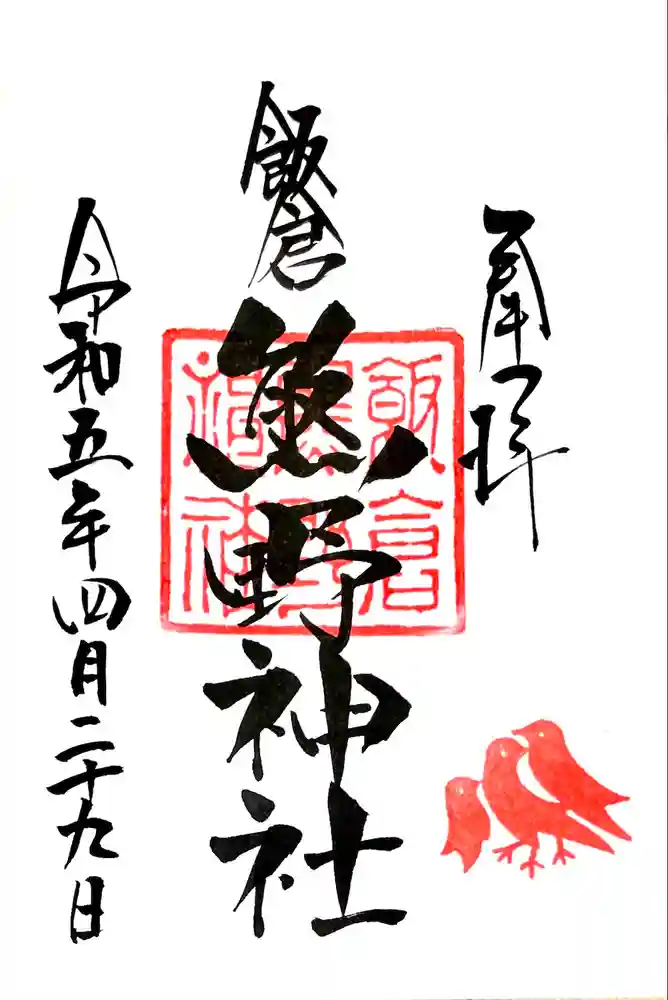 奉拝
飯倉
熊野神社
飯倉
熊野
神社
令和五年四月二十九日